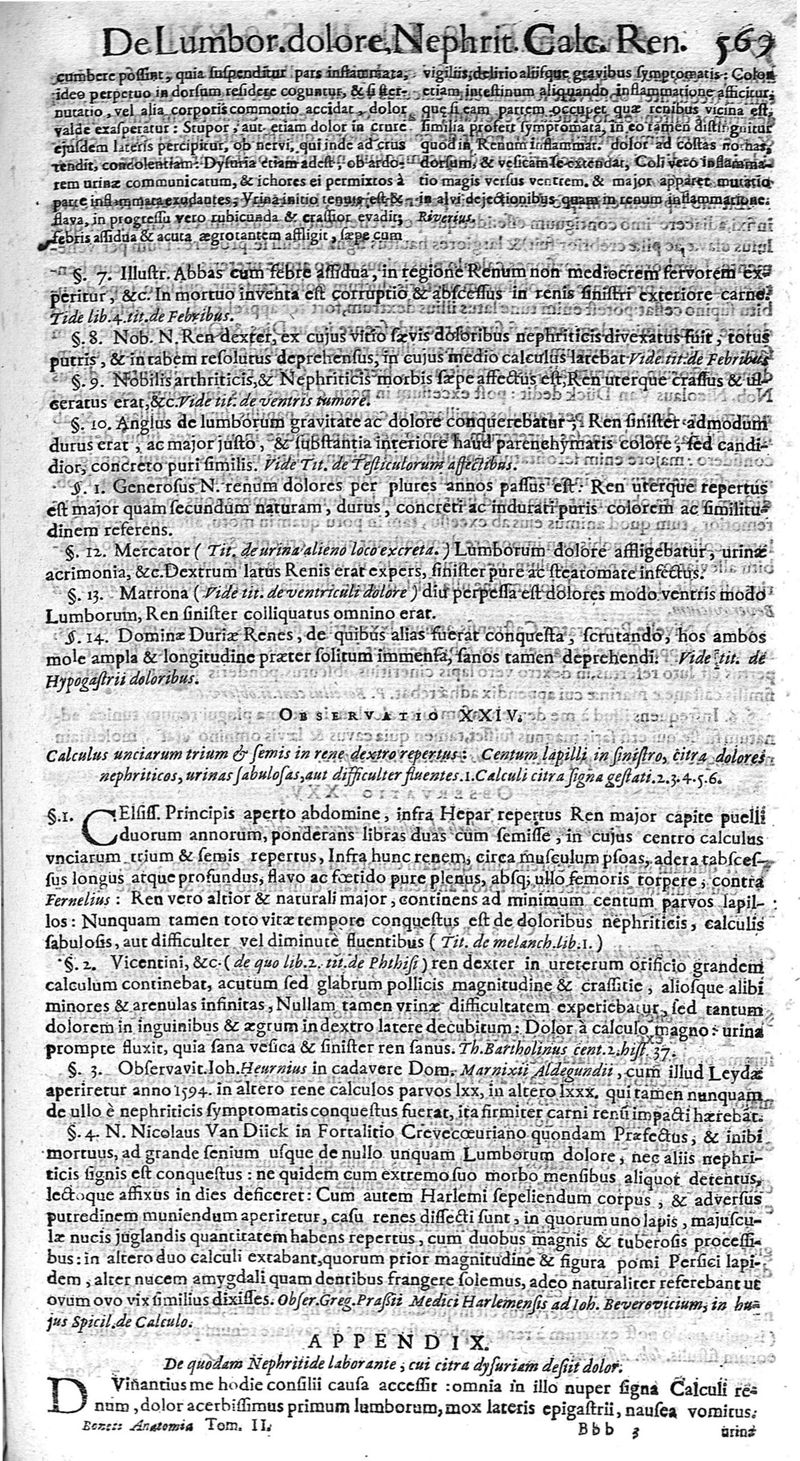 De Lumbor. dolore, Nephrit. Calc. Ren. 569
cumbere possint, quia suspenditur pars inflammata,
ideo perpetuo in dorsum residere coguntur, & si ster-
nutatio, vel alia corporis commotio accidat, dolor
valde exasperatur: Stupor, aut etiam dolor in crure
ejusdem lateris percipitur, ob nervi, qui inde ad crus
tendit, condolentiam: Dysuria etiam adest, ob ardo-
rem urinæ communicatum, & ichores ei permixtos à
parte inflammata exudantes, Vrina initio tenuis est &
flava, in progressu vero rubicunda & crassior evadit;
febris assidua & acuta ægrotantem affligit, sæpe cum
vigiliis, delirio aliisque gravibus symptomatis: Colon
etiam intestinum aliquando inflammatione afficitur,
que si eam partem occupet quæ renibus vicina est,
similia profert symptomata, in eo tamen distinguitur
quod in Renum inflammat. dolor ad costas nothas,
dorsum, & vesicam se extendat, Coli vero inflamma-
tio magis versus ventrem, & major apparet mutatio
in alvi dejectionibus quam in renum inflammatione.
Riverius.
§. 7. Illustr. Abbas cum febre assidua, in regione Renum non mediocrem fervorem ex-
peritur, &c. In mortuo inventa est corruptio & abscessus in renis sinistri exteriore carne.
Vide lib. 4. tit. de Febribus.
§. 8. Nob. N. Ren dexter, ex cujus vitio sævis doloribus nephriticis divexatus fuit, totus
putris, & in tabem resolutus deprehensus, in cujus medio calculus latebat Vide tit. de Febribus
§. 9. Nobilis arthriticis, & Nephriticis morbis sæpe affectus est, Ren uterque crassus & ul-
ceratus erat, &c. Vide tit. de ventris tumore.
§. 10. Anglus de lumborum gravitate ac dolore conquerebatur, Ren sinister admodum
durus erat, ac major justo, & substantia interiore haud parenchymatis colore, sed candi-
dior, concreto puri similis. Vide Tit. de Testiculorum affectibus.
§. 1. Generosus N. renum dolores per plures annos passus est. Ren uterque repertus
est major quam secundum naturam, durus, concreti ac indurati puris colorem ac similitu-
dinem referens.
§. 12. Mercator ( Tit. de urina alieno loco excreta. ) Lumborum dolore affligebatur, urinæ
acrimonia, &c. Dextrum latus Renis erat expers, sinister pure ac steatomate infectus.
§. 13. Matrona ( Vide tit. de ventriculi dolore ) diu perpessa est dolores modo ventris modo
Lumborum, Ren sinister colliquatus omnino erat.
§. 14. Dominæ Duriæ Renes, de quibus alias fuerat conquesta, scrutando, hos ambos
mole ampla & longitudine præter solitum immensa, sanos tamen deprehendi. Vide tit. de
Hypogastrii doloribus.
OBSERVATIO XXIV.
Calculus unciarum trium & semis in rene dextro repertus: Centum lapilli in sinistro, citra dolores
nephriticos, urinas sabulosas, aut difficulter fluentes. 1. Calculi citra signa gestati. 2. 3. 4. 5. 6.
§. 1. CElsiss. Principis aperto abdomine, infra Hepar repertus Ren major capite puelli
duorum annorum, ponderans libras duas cum semisse, in cujus centro calculus
vnciarum trium & semis repertus, Infra hunc renem, circa musculum psoas, adera tabsces-
sus longus atque profundus, flavo ac fœtido pure plenus, absq; ullo femoris torpore, contra
Fernelius: Ren vero altior & naturali major, continens ad minimum centum parvos lapil-
los: Nunquam tamen toto vitæ tempore conquestus est de doloribus nephriticis, calculis
sabulosis, aut difficulter vel diminute fluentibus ( Tit. de melanch. lib. 1. )
§. 2. Vicentini, &c. ( de quo lib. 2. tit. de Phthisi ) ren dexter in ureterum orificio grandem
calculum continebat, acutum sed glabrum pollicis magnitudine & crassitie, aliosque alibi
minores & arenulas infinitas, Nullam tamen vrinæ difficultatem experiebatur, sed tantum
dolorem in inguinibus & ægrum in dextro latere decubitum: Dolor à calculo magno: urina
prompte fluxit, quia sana vesica & sinister ren sanus. Th. Bartholinus cent. 2. hist. 37.
§. 3. Observavit Joh. Heurnius in cadavere Dom. Marnixii Aldegundii, cum illud Leydæ
aperiretur anno 1594. in altero rene calculos parvos lxx, in altero lxxx. qui tamen nunquam
de ullo è nephriticis symptomatis conquestus fuerat, ita firmiter carni renū impacti hærebāt.
§. 4. N. Nicolaus Van Diick in Fortalitio Crevecœuriano quondam Præfectus, & inibi
mortuus, ad grande senium usque de nullo unquam Lumborum dolore, nec aliis nephri-
ticis signis est conquestus: ne quidem cum extremo suo morbo mensibus aliquot detentus,
lectoque affixus in dies deficeret: Cum autem Harlemi sepeliendum corpus, & adversus
putredinem muniendum aperiretur, casu renes dissecti sunt, in quorum uno lapis, majuscu-
læ nucis juglandis quantitatem habens repertus, cum duobus magnis & tuberosis processi-
bus: in altero duo calculi extabant, quorum prior magnitudine & figura pomi Persici lapi-
dem, alter nucem amygdali quam dentibus frangere solemus, adeo naturaliter referebant ut
ovum ovo vix similius dixisses. Obser. Greg. Prassii Medici Harlemensis ad Ioh. Beverovicium, in hu-
jus Spicil. de Calculo.
APPENDIX.
De quodam Nephritide laborante, cui citra dysuriam desiit dolor.
DViñantius me hodie consilii causa accessit: omnia in illo nuper signa Calculi re-
num, dolor acerbissimus primum lumborum, mox lateris epigastrii, nausea vomitus:
Boneti Anatomia Tom. II. Bbb 3 urinæ